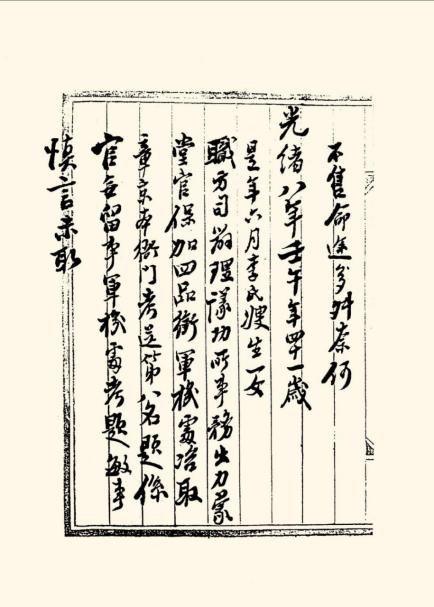 不售命途多舛奈何
光緒八年壬午年四十一歲
是年六月李氏嫂生一女
職方司辦理議功所事務出力蒙
堂官保加四品銜軍機處咨取
章京本衙門考送第八名題係
官無留事軍機處考題敏事
慎言未取